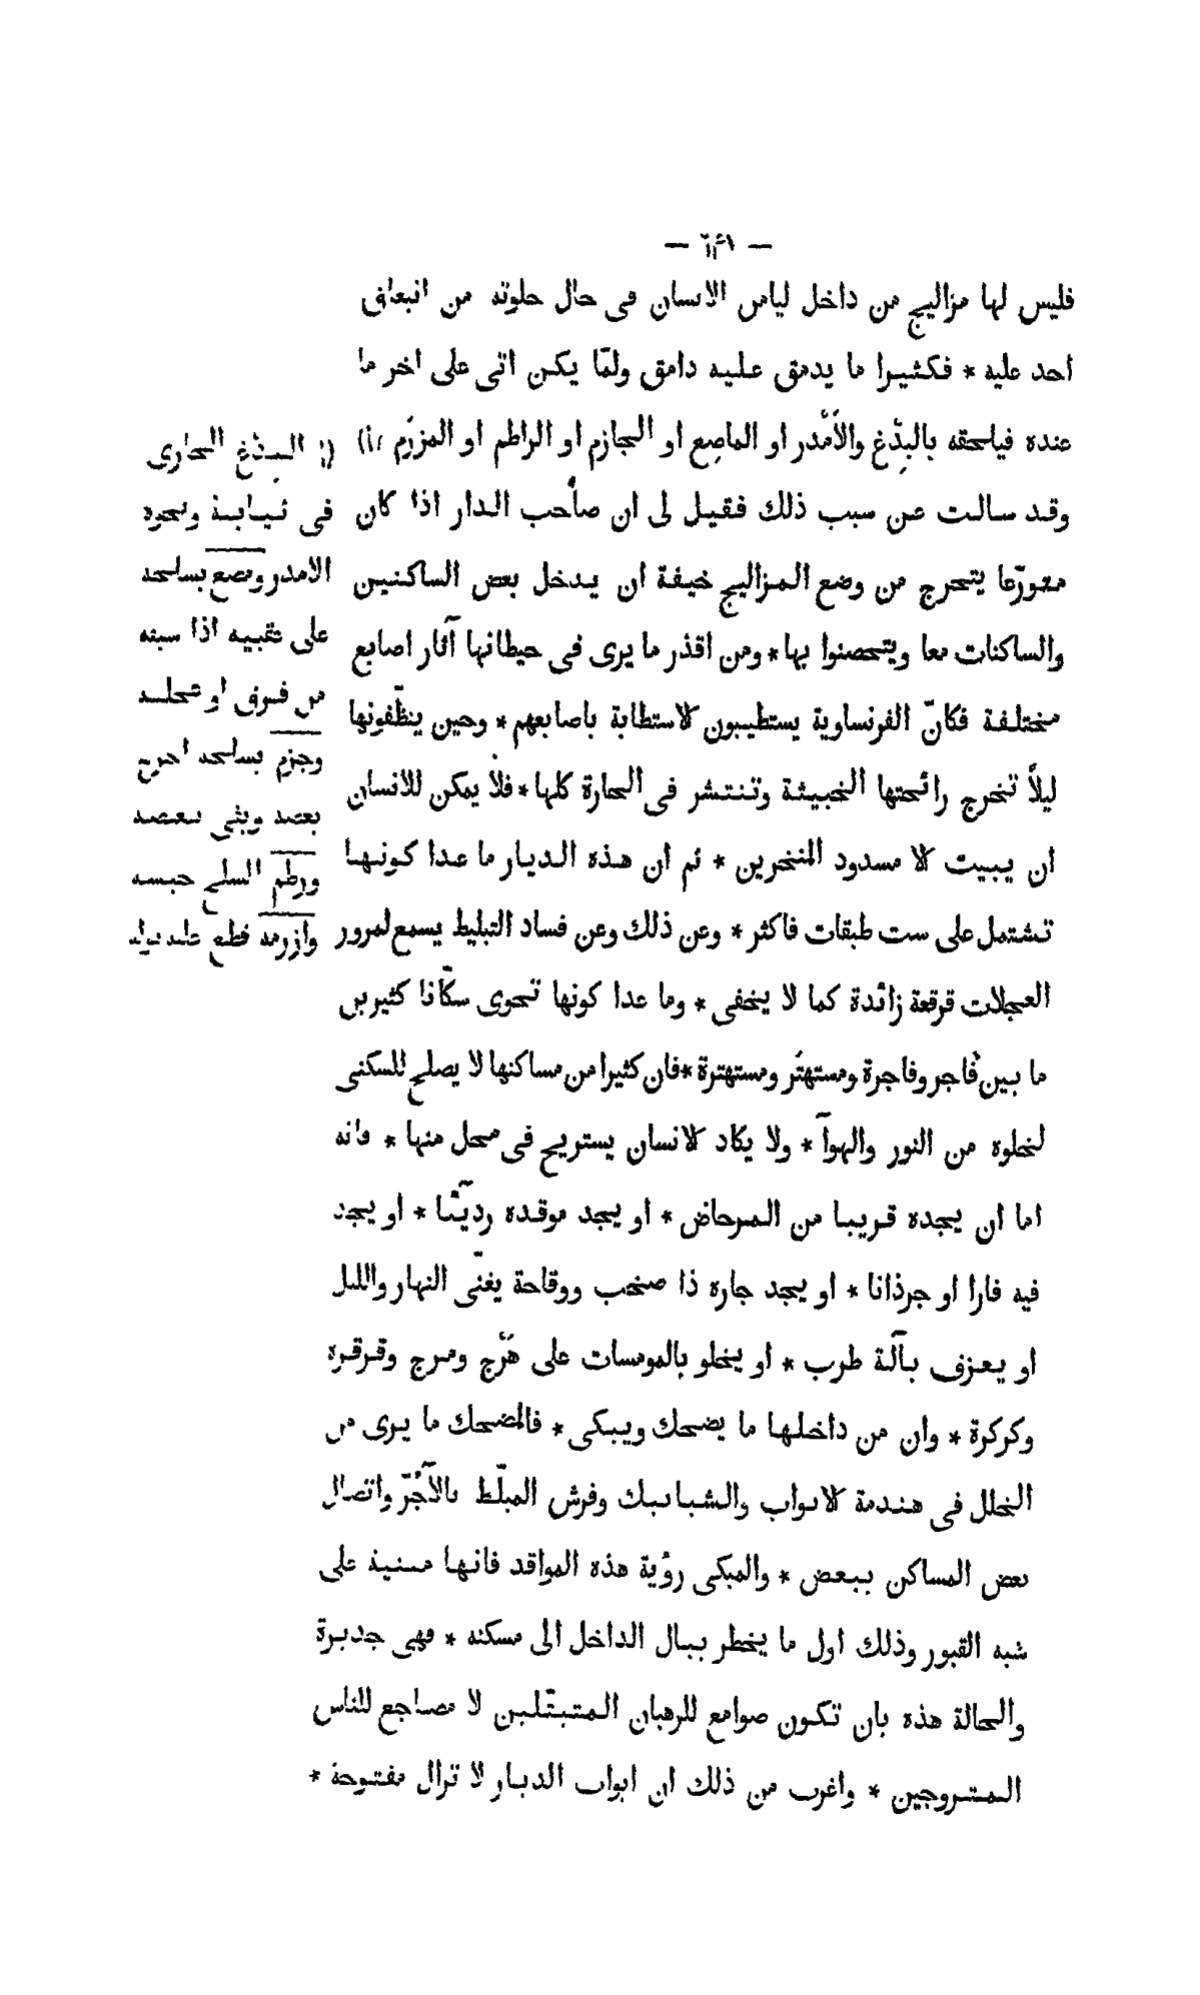 فليس لها مزاليج من داخل ليامن الانسان فى حال خلوته من انبعاق
احد عليه * فكثيرا ما يدمق عليه دامق ولمّا يكن اتى على اخر ما
عنده فياحقه بالبِدّغ والأمْدر او الماصِع او الجازم او الراطم او المزرَم (ا)
وقد سالت عن سبب ذلك فقيل لى ان صاحب الدار اذا كان
متورّعا يتحرج من وضع المزاليج خيفة ان يدخل بعض الساكنين
والساكنات معا ويتحصنوا بها * ومن اقذر ما يرى فى حيطانها آثار اصابع
مختلفة فكانّ الفرنساوية يستطيبون الاستطابة باصابعهم * وحين ينظّفونها
ليلاً تخرج رائحتها الخبيثة وتنتشر فى الحارة كلها * فلا يمكن للانسان
ان يبيت الا مسدود المنخرين * ثم ان هذه الديار ما عدا كونها
تشتمل على ست طبقات فاكثر * وعن ذلك وعن فساد التبليط يسمع لمرور
العجلات قرقعة زائدة كما لا يخفى * وما عدا كونها تحوى سكّانا كثيرين
ما بين فاجر وفاجرة ومستهتَر ومستهترة * فان كثيرا من مساكنها لا يصلح للسكنى
لخلوه من النور والهوآ * ولا يكاد الانسان يستريح فى محل منها * فانه
اما ان يجده قريبا من المرحاض * او يجد موقده رديّئا * او يجد
فيه فارا او جرذانا * او يجد جاره ذا صخب ووقاحة يغنّى النهار والليل
او يعزف بآلة طرب * او يخلو بالمومسات على هَرْج ومرج وقرقرة
وكركرة * وان من داخلها ما يضحك ويبكى * فالمضحك ما يرى من
الخلل فى هندمة الابواب والشبابيك وفرش المبلّط بالآجُرّ واتصال
بعض المساكن ببعض * والمبكى رؤية هذه المواقد فانها مبنية على
شبه القبور وذلك اول ما يخطر ببال الداخل الى مسكنه * فهى جديرة
والحالة هذه بان تكون صوامع للرهبان المتبتّلين لا مضاجع للناس
المتزوجين * واغرب من ذلك ان ابواب الديار لا تزال مفتوحة *
(ا) البِدّغ الخارى
فى ثيابه ونحوه
الامدر ومصع بسلحه
على عقبيه اذا سبقه
من فرق او عجلة
وجزم بسلحه اخرج
بعضه وبقى بعضه
ورطم السلح حبسه
وازرمه قطع عليه بوله